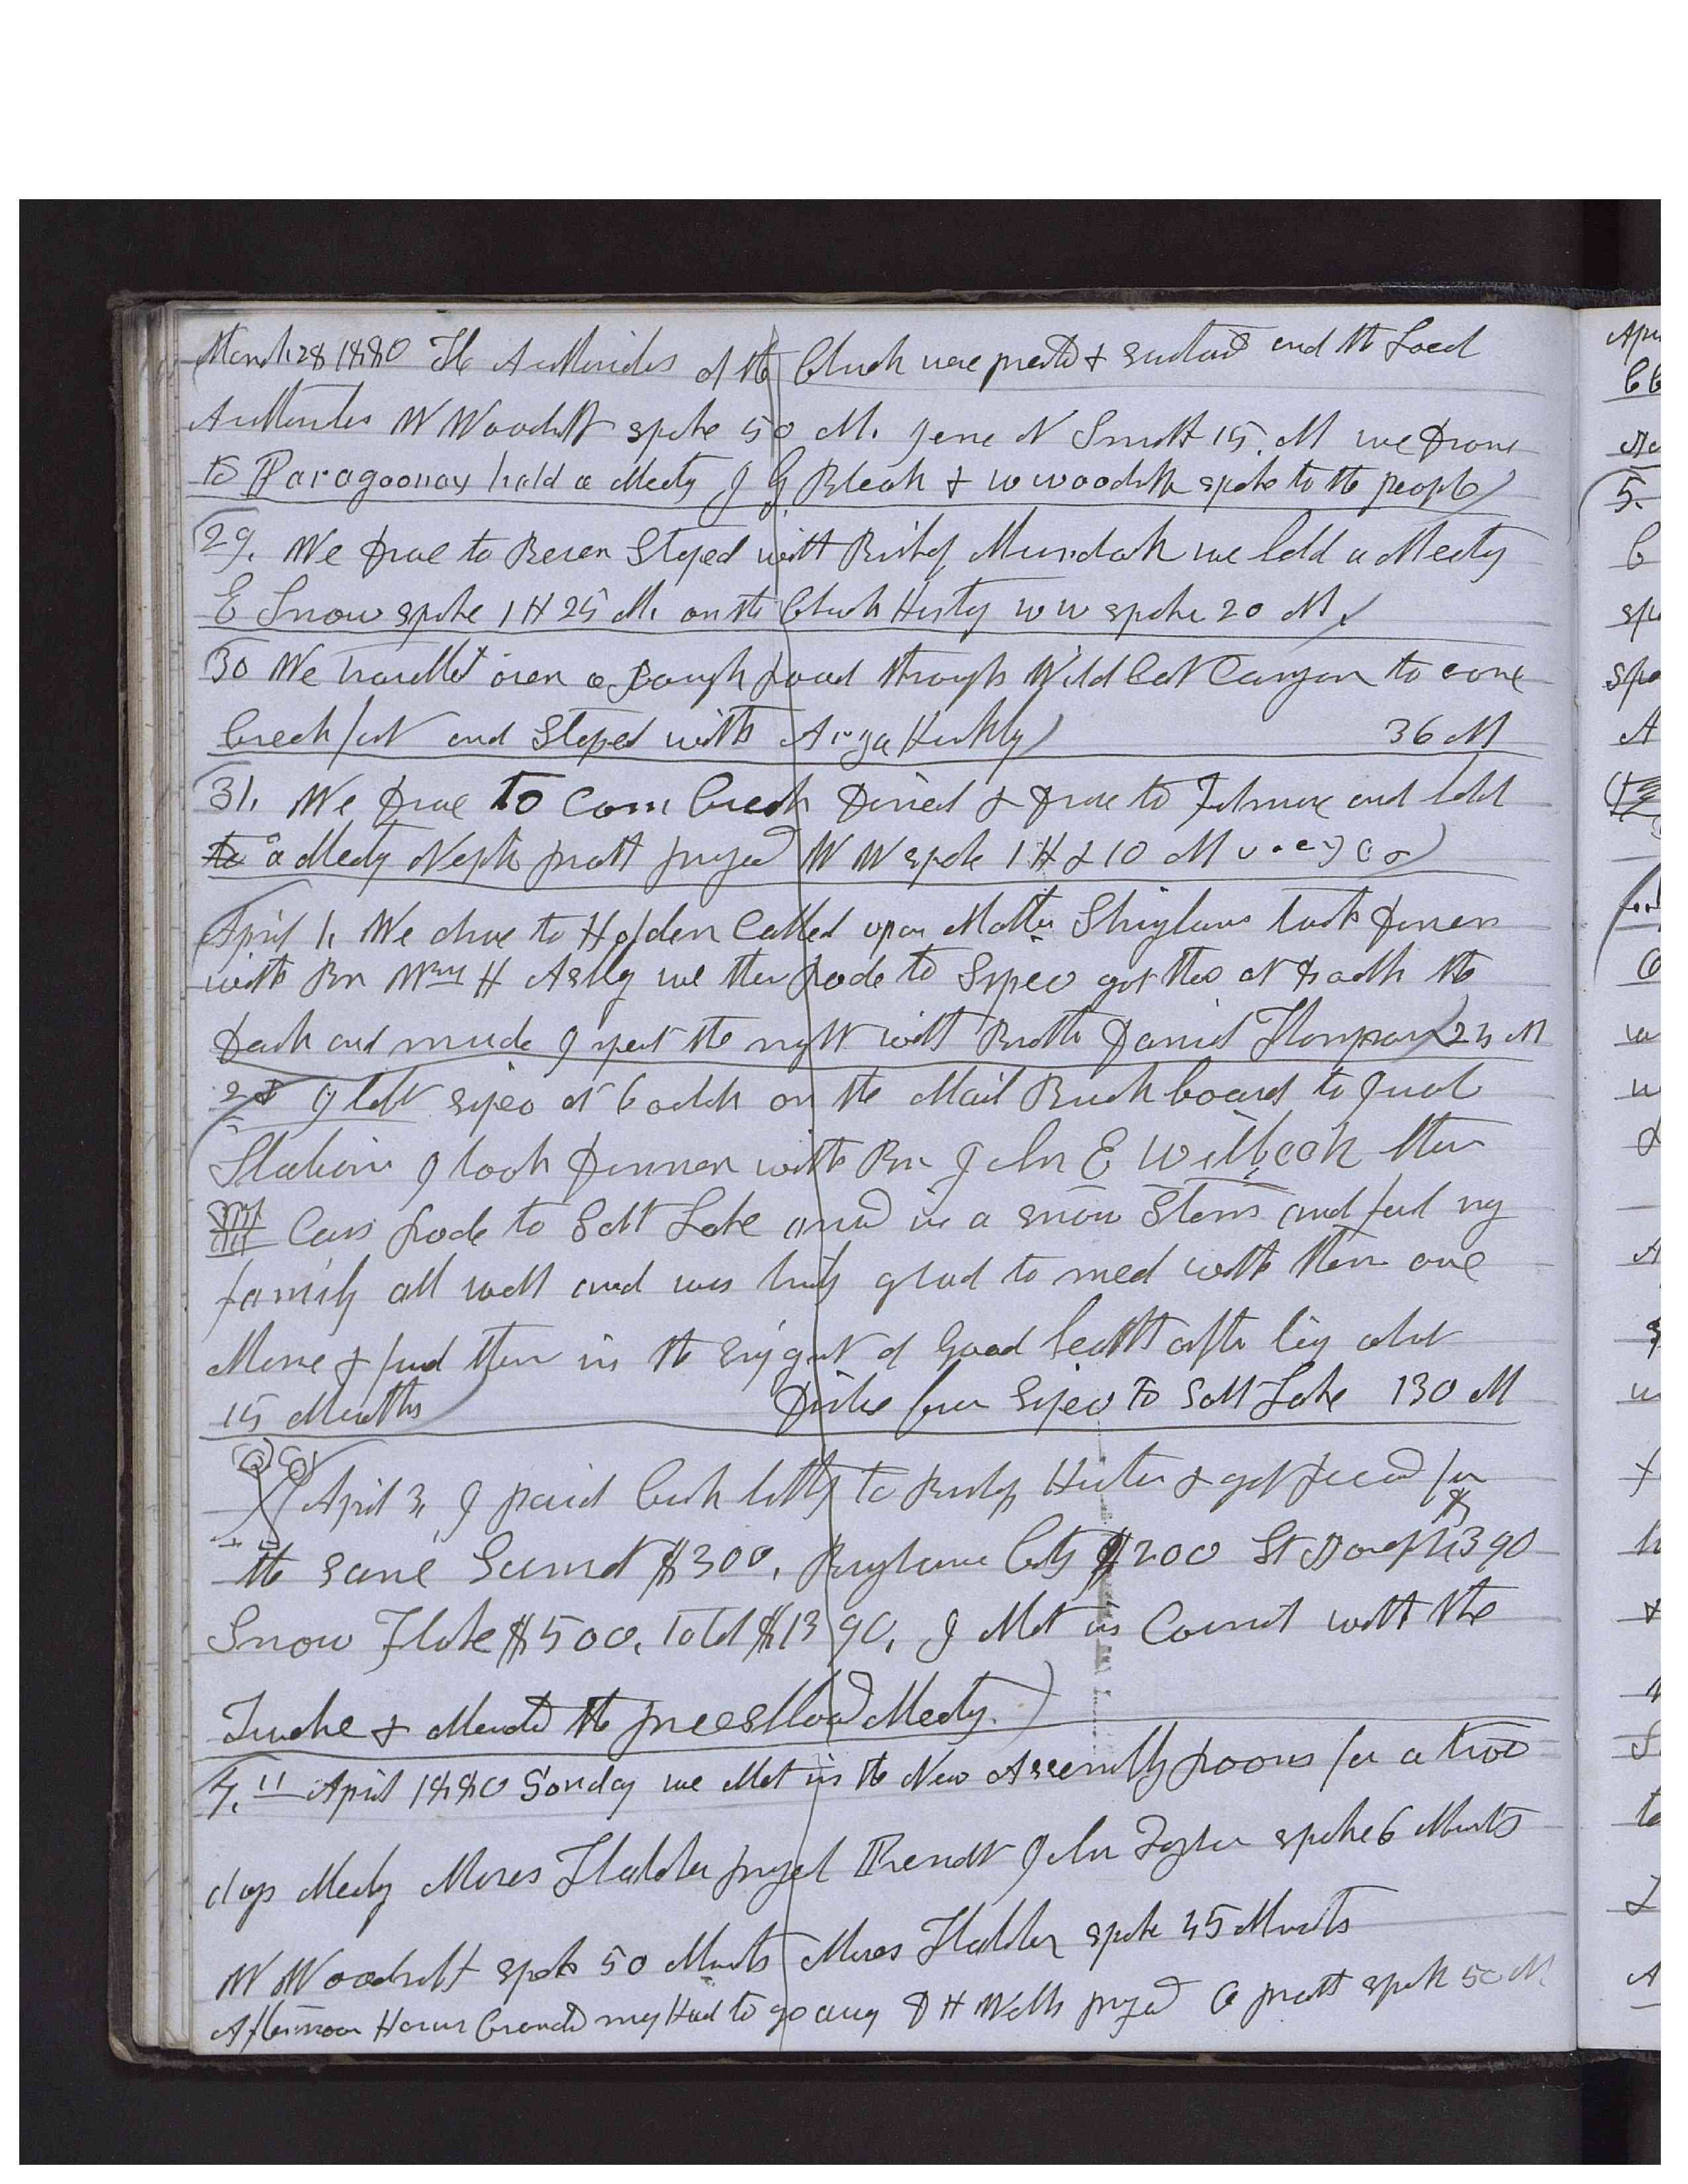 March 28 1880 The Authorities of the Church were presented & sustained and the Local
Authorities W Woodruff spoke 50 M. Jesse N Smith 15. M we drove
to Paragoonay held a Meeting J G Bleak & W Woodruff spoke to the people
29. We drove to Bever Stoped with Bishop Murdock we held a Meeting
E Snow spoke 1 H 25 M. on the Church History W W spoke 20 M.
30 We travelled over a Rough road through Wild Cat Canyon to Cove
Creek fort and Stoped with 36 M
31. We drove to Corn Creek dined & drove to Filmore and held
a Meeting Nephi Pratt prayed W W spoke 1 H & 10 M
April 1. We drove to Holden Called upon Mother took dinner
with Br Wm H we then rode to Sipeo got there at the
dark and I spent the night with Brother Daniel Thompson 24 M
2d I left Sipeo at 6 oclok on the Mail Buck board to Juab
Station I took dinner with Br John E then
Cars rode to Salt Lake arived in a snow Storm and found my
family all well and was truly glad to meet with them once
More & found them in the enjoyment of Good health after being absent
15 Months Distance from Sipeo to Salt Lake 130 M
April 3, I paid Cash tithing to Bishop Hunter & got receipt for
the same Sum of $300. Brigham City $200 St Joseph $390
Snow Flake $500. Total $1390. I Met in Council with the
Twelve & attended the preesthood Meeting.
4. April 1880 Sonday we Met in the New Assembly rooms for a two
days Meeting Moses Thatcher prayed Presidet John Taylor spoke 6 Minuts
W Woodruff spoke 50 Minuts Moses Thatcher spoke 45 Minuts
Afternoon my to go away D H Wells prayed O Pratt spoke 50 M